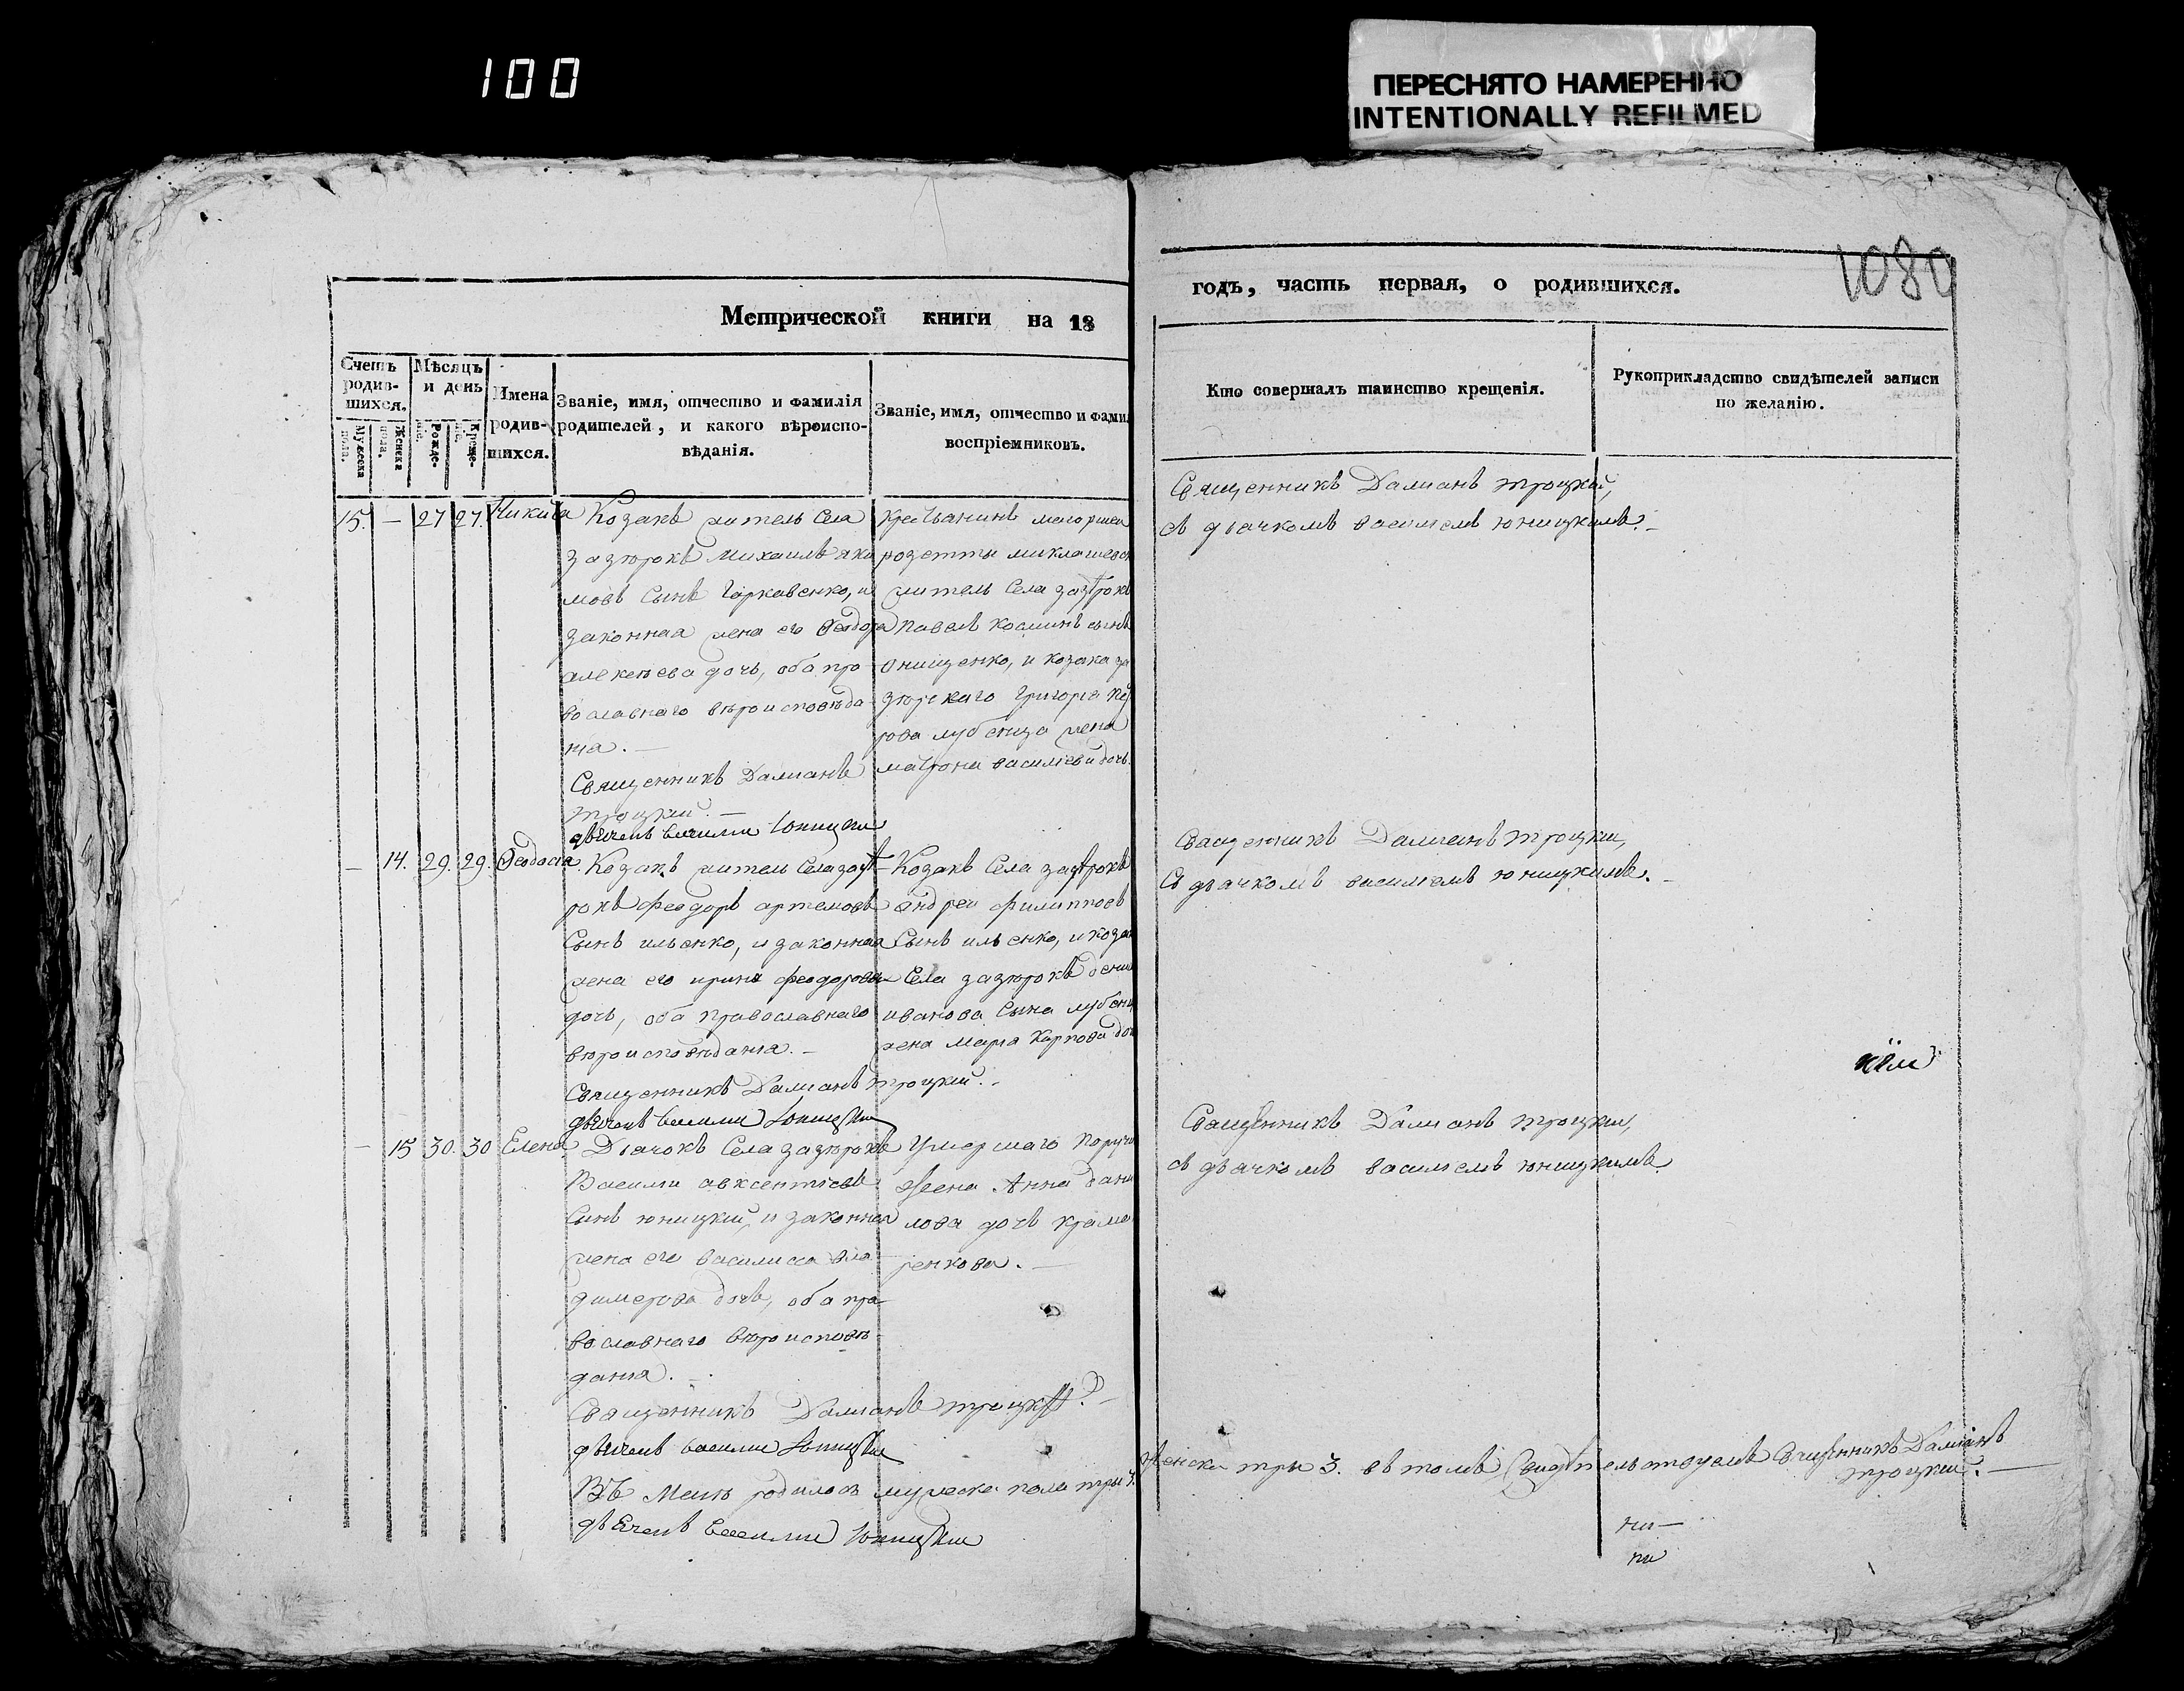 100
ПЕРЕСНЯТО НАМЕРЕННО
INTENTIONALLY REFILMED
1080
Метрической книги на 18
годъ, часть первая, о родившихся.
Счетъ родив-шихся.
Мужеска пола.
Женска пола.
Мѣсяцъ и день
Рожде-нія.
Креще-нія.
Имена родив-шихся.
Званіе, имя, отчество и фамилія
родителей, и какого вѣроиспо-
вѣданія.
Званіе, имя, отчество и фами
воспріемниковъ.
Кто совершалъ таинство крещенія.
Рукоприкладство свидѣтелей записи
по желанію.
15. — 27 27. Никита
Козакъ житель Села
зазѣрокъ Михаилъ яки
мовъ Сынъ Гаркавенко, и
законная жена его Ѳеодора
алексѣева дочь, оба пра
вославнаго вѣроисповѣда
нія. —
Священникъ Даміанъ
троцкий. —
дьячекъ василий Юницкий
крестьянинъ маіорши
розетты миклашевск
житель Села зазѣрокъ
Павелъ косминъ сынъ
Онищенко, и козака за
зѣрскаго Григорія Пе
рова лубенца жена
матрона василіева дочь
Священникъ Даміанъ троцкий,
съ дьячкомъ василіемъ юницкимъ. —
— 14. 29. 29. Ѳеодосія.
Козакъ житель Села зазѣ
рокъ феодоръ артемовъ
Сынъ ильенко, и законная
жена его ирина феодорова
дочь, оба православнаго
вѣроисповѣданія. —
Священникъ Даміанъ троцкий. —
дьячекъ василий Юницкий
Козакъ Села зазѣрокъ
андрей филипповъ
Сынъ ильенко, и коза
Села зазѣрокъ дени
иванова Сына лубен
жена Марія Карпова до
Священникъ Даміанъ троцкий,
Съ дьячкомъ василіемъ юницкимъ. —
— 15 30. 30 Елена
Дьячокъ Села зазѣрокъ
Василий авксентіевъ
Сынъ юницкий, и законная
жена его василисса вла
димерова дочь, оба пра
вославнаго вѣроисповѣ
данія. —
Священникъ Даміанъ троцкий. —
дьячекъ василий Юницкий
Умершаго Поручи
жена Анна дани
лова дочь крама
ренкова. —
Священникъ Даміанъ троцкий,
съ дьячкомъ василіемъ юницкимъ
Въ Маіѣ родилось мужеска пола три 3.
женска три 3. въ томъ Свидѣтельствуемъ Священникъ Даміанъ
троцкий. —
дьячекъ василий Юницкий